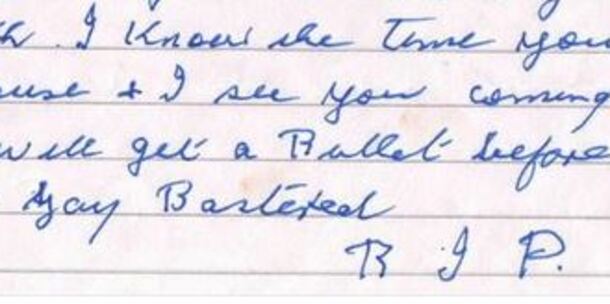 I Know the Time you
use + I see you coming
will get a Bullet before
gay Bastered
R I P.